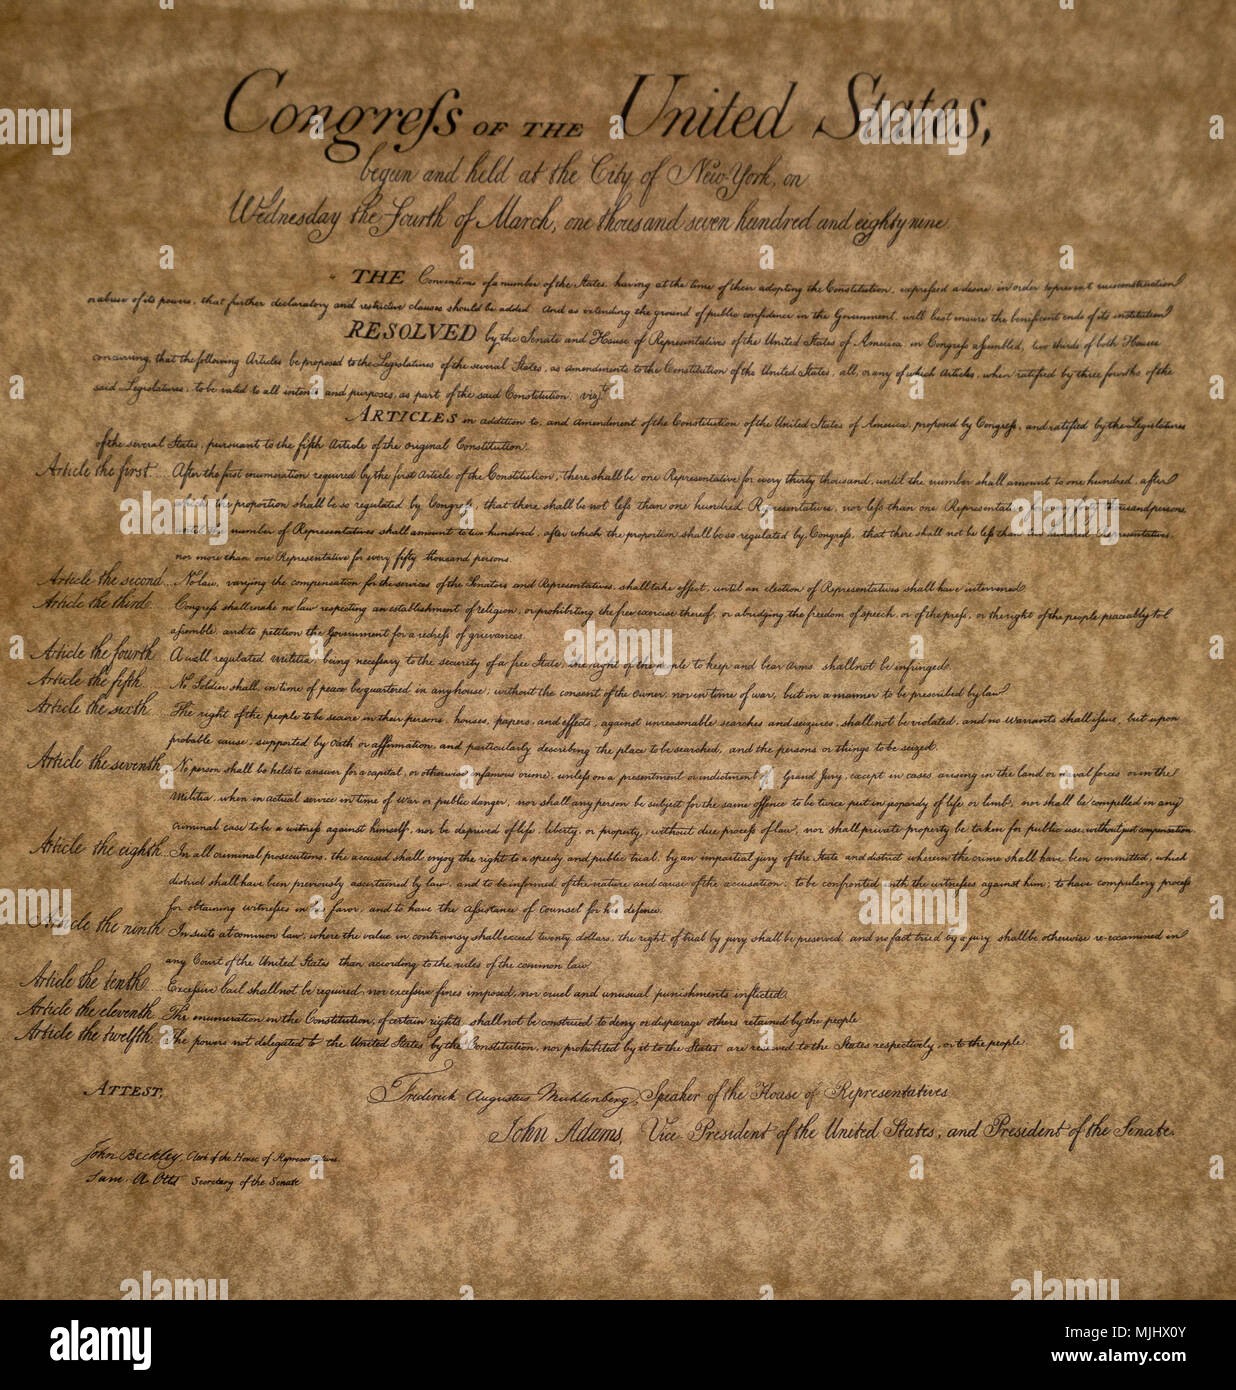 Congreſs OF THE United States,
begun and held at the City of New-York, on
Wednesday the Fourth of March, one thousand seven hundred and eighty nine
THE Conventions of a number of the States, having at the time of their adopting the Constitution, expreſsed a desire, in order to prevent misconstruction
or abuse of its powers, that further declaratory and restrictive clauses should be added. And as extending the ground of public confidence in the Government, will best ensure the beneficent ends of its institution
RESOLVED by the Senate and House of Representatives of the United States of America, in Congreſs aſsembled, two thirds of both Houses
concurring, that the following Articles be proposed to the Legislatures of the several States, as amendments to the Constitution of the United States, all, or any of which Articles, when ratified by three fourths of the
said Legislatures, to be valid to all intents and purposes, as part of the said Constitution, vizt
ARTICLES in addition to, and amendment of the Constitution of the United States of America, proposed by Congreſs, and ratified by the Legislatures
of the several States, pursuant to the fifth Article of the original Constitution.
Article the first. After the first enumeration required by the first Article of the Constitution, there shall be one Representative for every thirty thousand, until the number shall amount to one hundred, after
which the proportion shall be so regulated by Congreſs, that there shall be not leſs than one hundred Representatives, nor leſs than one Representative for every forty thousand persons,
until the number of Representatives shall amount to two hundred, after which the proportion shall be so regulated by Congreſs, that there shall not be leſs than two hundred Representatives,
nor more than one Representative for every fifty thousand persons.
Article the second. No law, varying the compensation for the services of the Senators and Representatives, shall take effect, until an election of Representatives shall have intervened.
Article the third. Congreſs shall make no law respecting an establishment of religion, or prohibiting the free exercise thereof; or abridging the freedom of speech, or of the preſs, or the right of the people peaceably to
aſsemble, and to petition the Government for a redreſs of grievances.
Article the fourth. A well regulated militia, being neceſsary to the security of a free State, the right of the people to keep and bear arms shall not be infringed.
Article the fifth. No Soldier shall, in time of peace be quartered in any house, without the consent of the owner, nor in time of war, but in a manner to be prescribed by law.
Article the sixth. The right of the people to be secure in their persons, houses, papers, and effects, against unreasonable searches and seizures, shall not be violated, and no warrants shall iſsue, but upon
probable cause, supported by oath or affirmation, and particularly describing the place to be searched, and the persons or things to be seized.
Article the seventh. No person shall be held to answer for a capital, or otherwise infamous crime, unleſs on a presentment or indictment of a Grand Jury, except in cases arising in the land or naval forces, or in the
Militia, when in actual service in time of war or public danger; nor shall any person be subject for the same offence to be twice put in jeopardy of life or limb; nor shall be compelled in any
criminal case to be a witneſs against himself, nor be deprived of life, liberty, or property, without due proceſs of law; nor shall private property be taken for public use, without just compensation.
Article the eighth. In all criminal prosecutions, the accused shall enjoy the right to a speedy and public trial, by an impartial jury of the State and district wherein the crime shall have been committed, which
district shall have been previously ascertained by law, and to be informed of the nature and cause of the accusation; to be confronted with the witneſses against him; to have compulsory proceſs
for obtaining witneſses in his favor, and to have the aſsistance of counsel for his defence.
Article the ninth. In suits at common law, where the value in controversy shall exceed twenty dollars, the right of trial by jury shall be preserved, and no fact tried by a jury, shall be otherwise re-examined in
any Court of the United States, than according to the rules of the common law.
Article the tenth. Exceſsive bail shall not be required, nor exceſsive fines imposed, nor cruel and unusual punishments inflicted.
Article the eleventh. The enumeration in the Constitution, of certain rights, shall not be construed to deny or disparage others retained by the people.
Article the twelfth. The powers not delegated to the United States by the Constitution, nor prohibited by it to the States, are reserved to the States respectively, or to the people.
ATTEST,
Frederick Augustus Muhlenberg, Speaker of the House of Representatives
John Adams, Vice President of the United States, and President of the Senate.
John Beckley, Clerk of the House of Representatives.
Sam. A. Otis Secretary of the Senate
alamy
Image ID: MJHX0Y
www.alamy.com